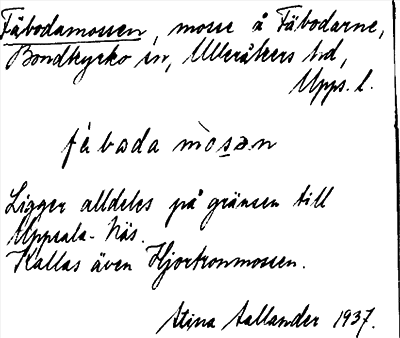 Fäbodamossen, mosse å Fäbodarne,
Bondkyrko sn, Ulleråkers hd,
Upps. l.
fàbada mòsan
Ligger alldeles på gränsen till
Uppsala-Näs.
Kallas även Hjortronmossen.
Stina Sallander 1937.